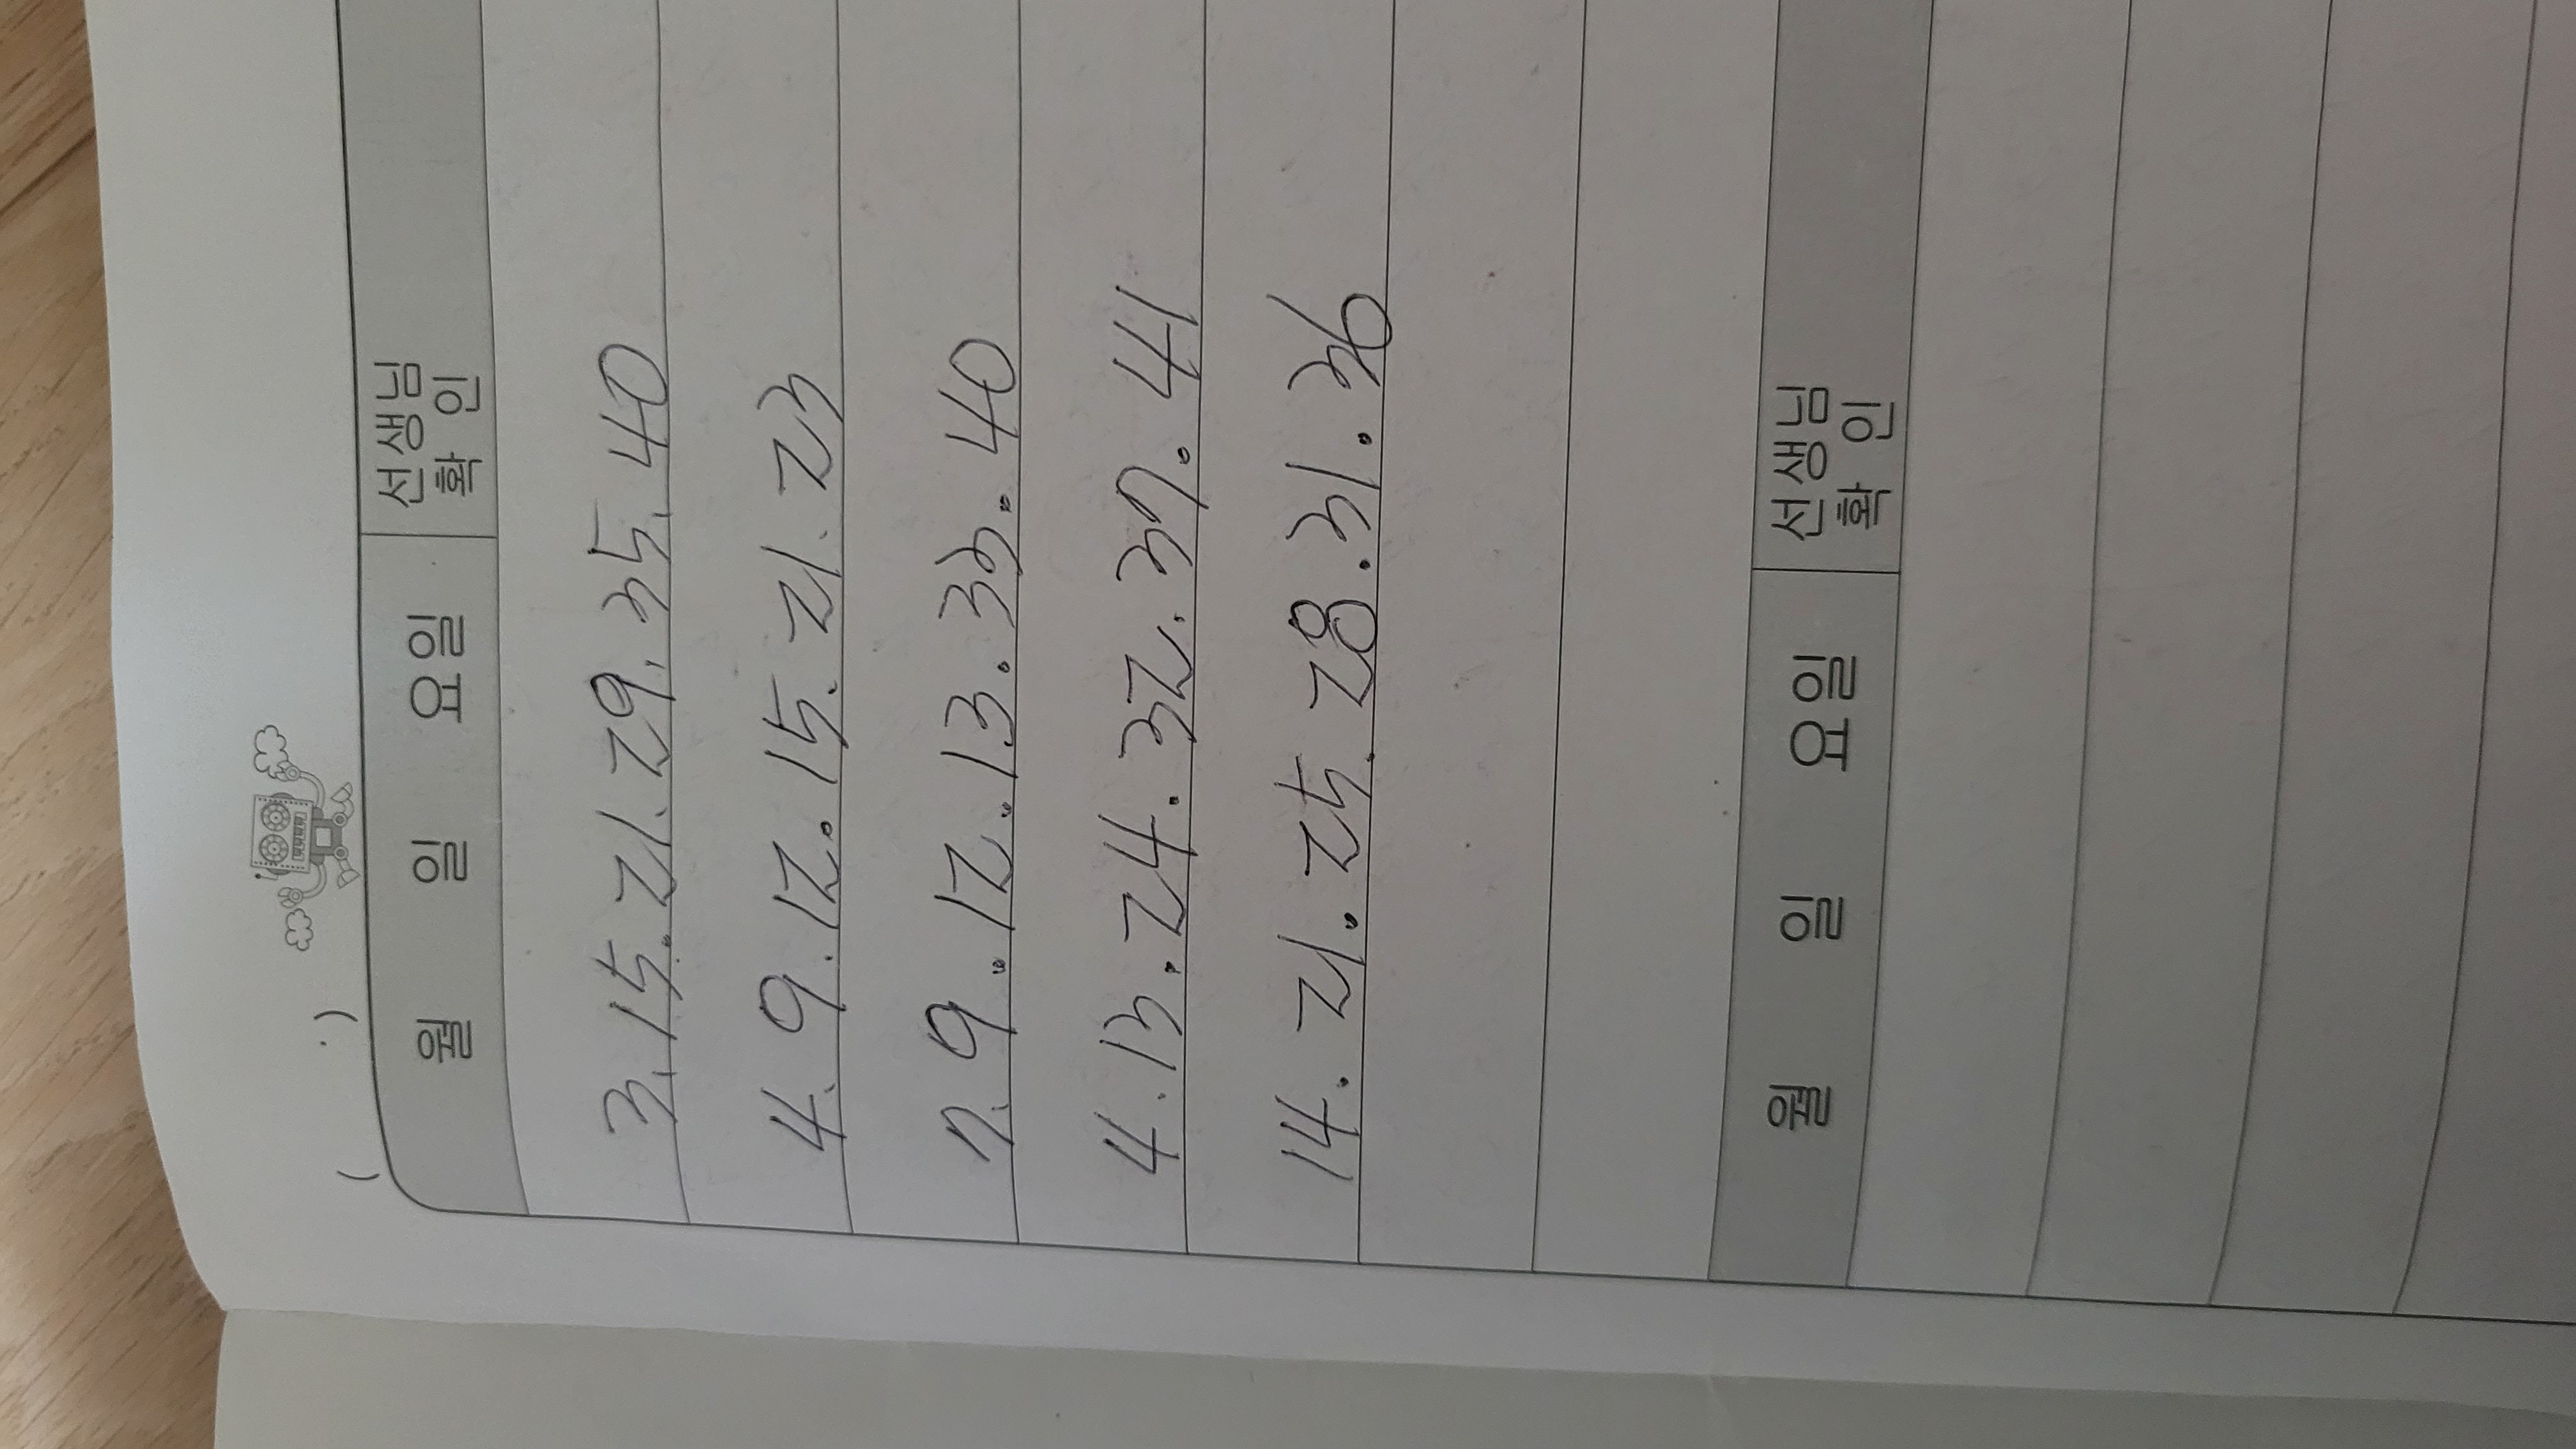 ( . )
월 일 요일 선생님 확 인
3. 15. 21. 29. 35. 40
4. 9. 12. 15. 21. 23
7. 9. 12. 13. 33. 40
4. 13. 24. 32. 37. 41
14. 21. 25. 28. 31. 36
월 일 요일 선생님 확 인